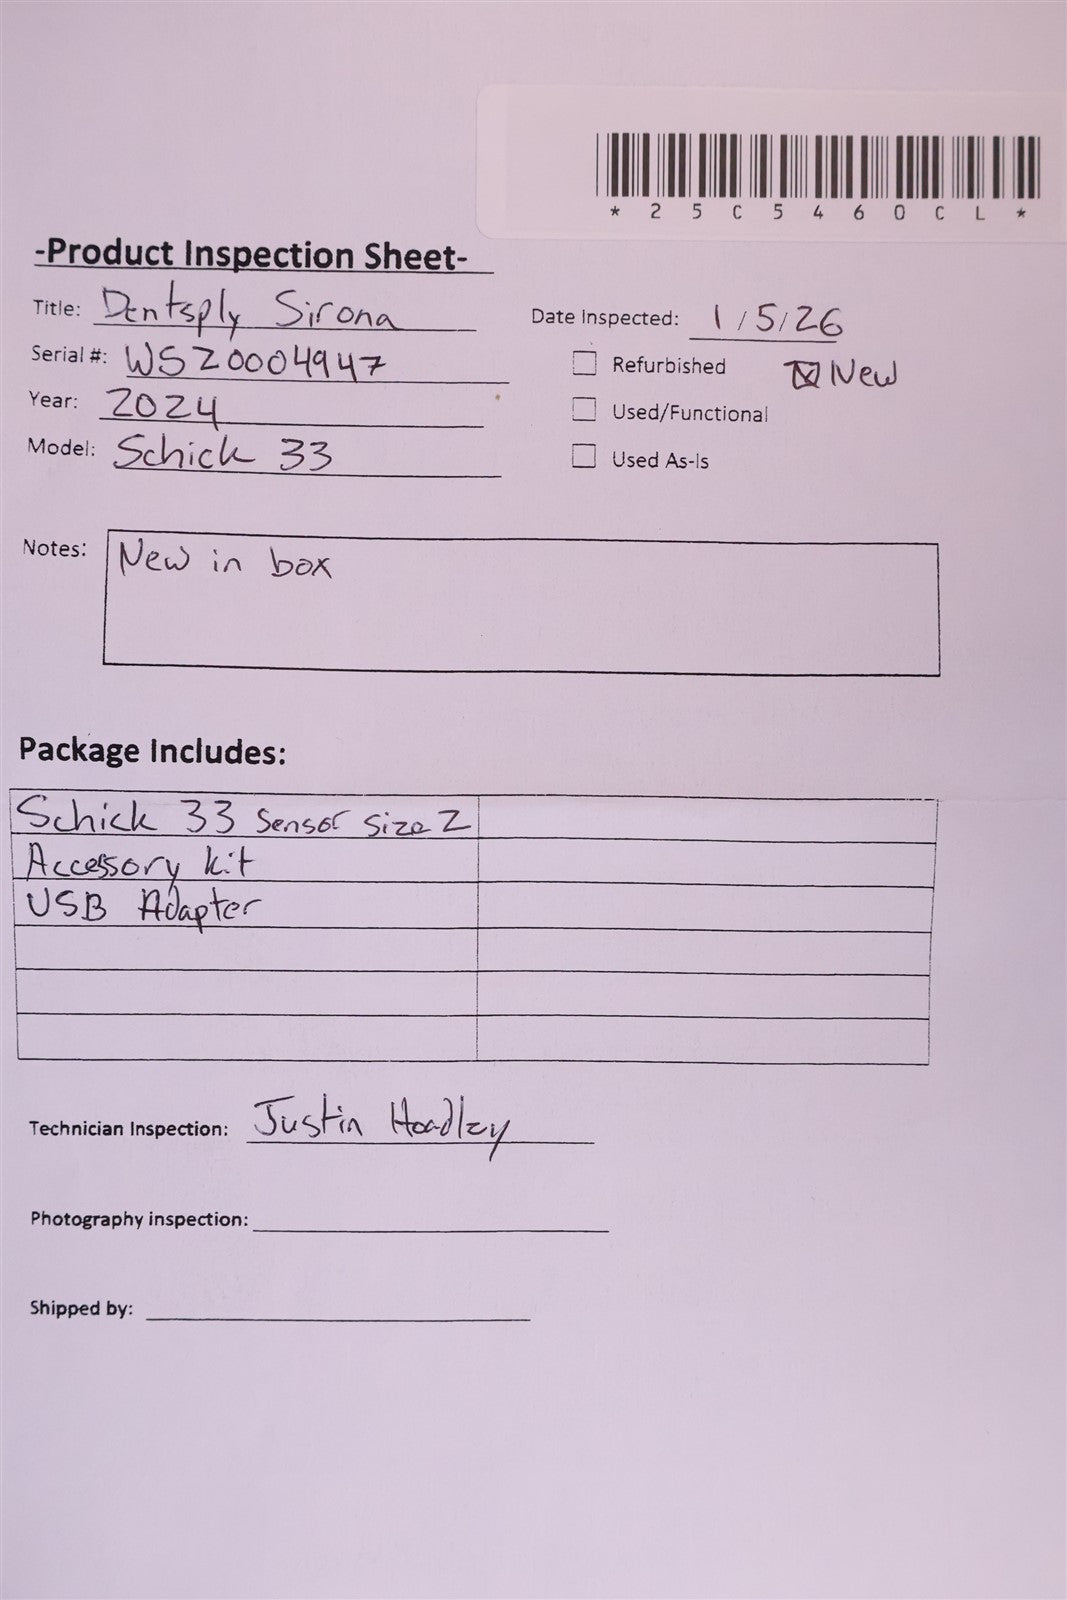 * 2 5 C 5 4 6 0 C L *
-Product Inspection Sheet-
Title: Dentsply Sirona
Date Inspected: 1/5/26
Serial #: WS20004947
Refurbished
New
Year: 2024
Used/Functional
Model: Schick 33
Used As-Is
Notes: New in box
Package Includes:
Schick 33 Sensor Size 2
Accessory kit
USB Adapter
Technician Inspection: Justin Hoadley
Photography inspection:
Shipped by: